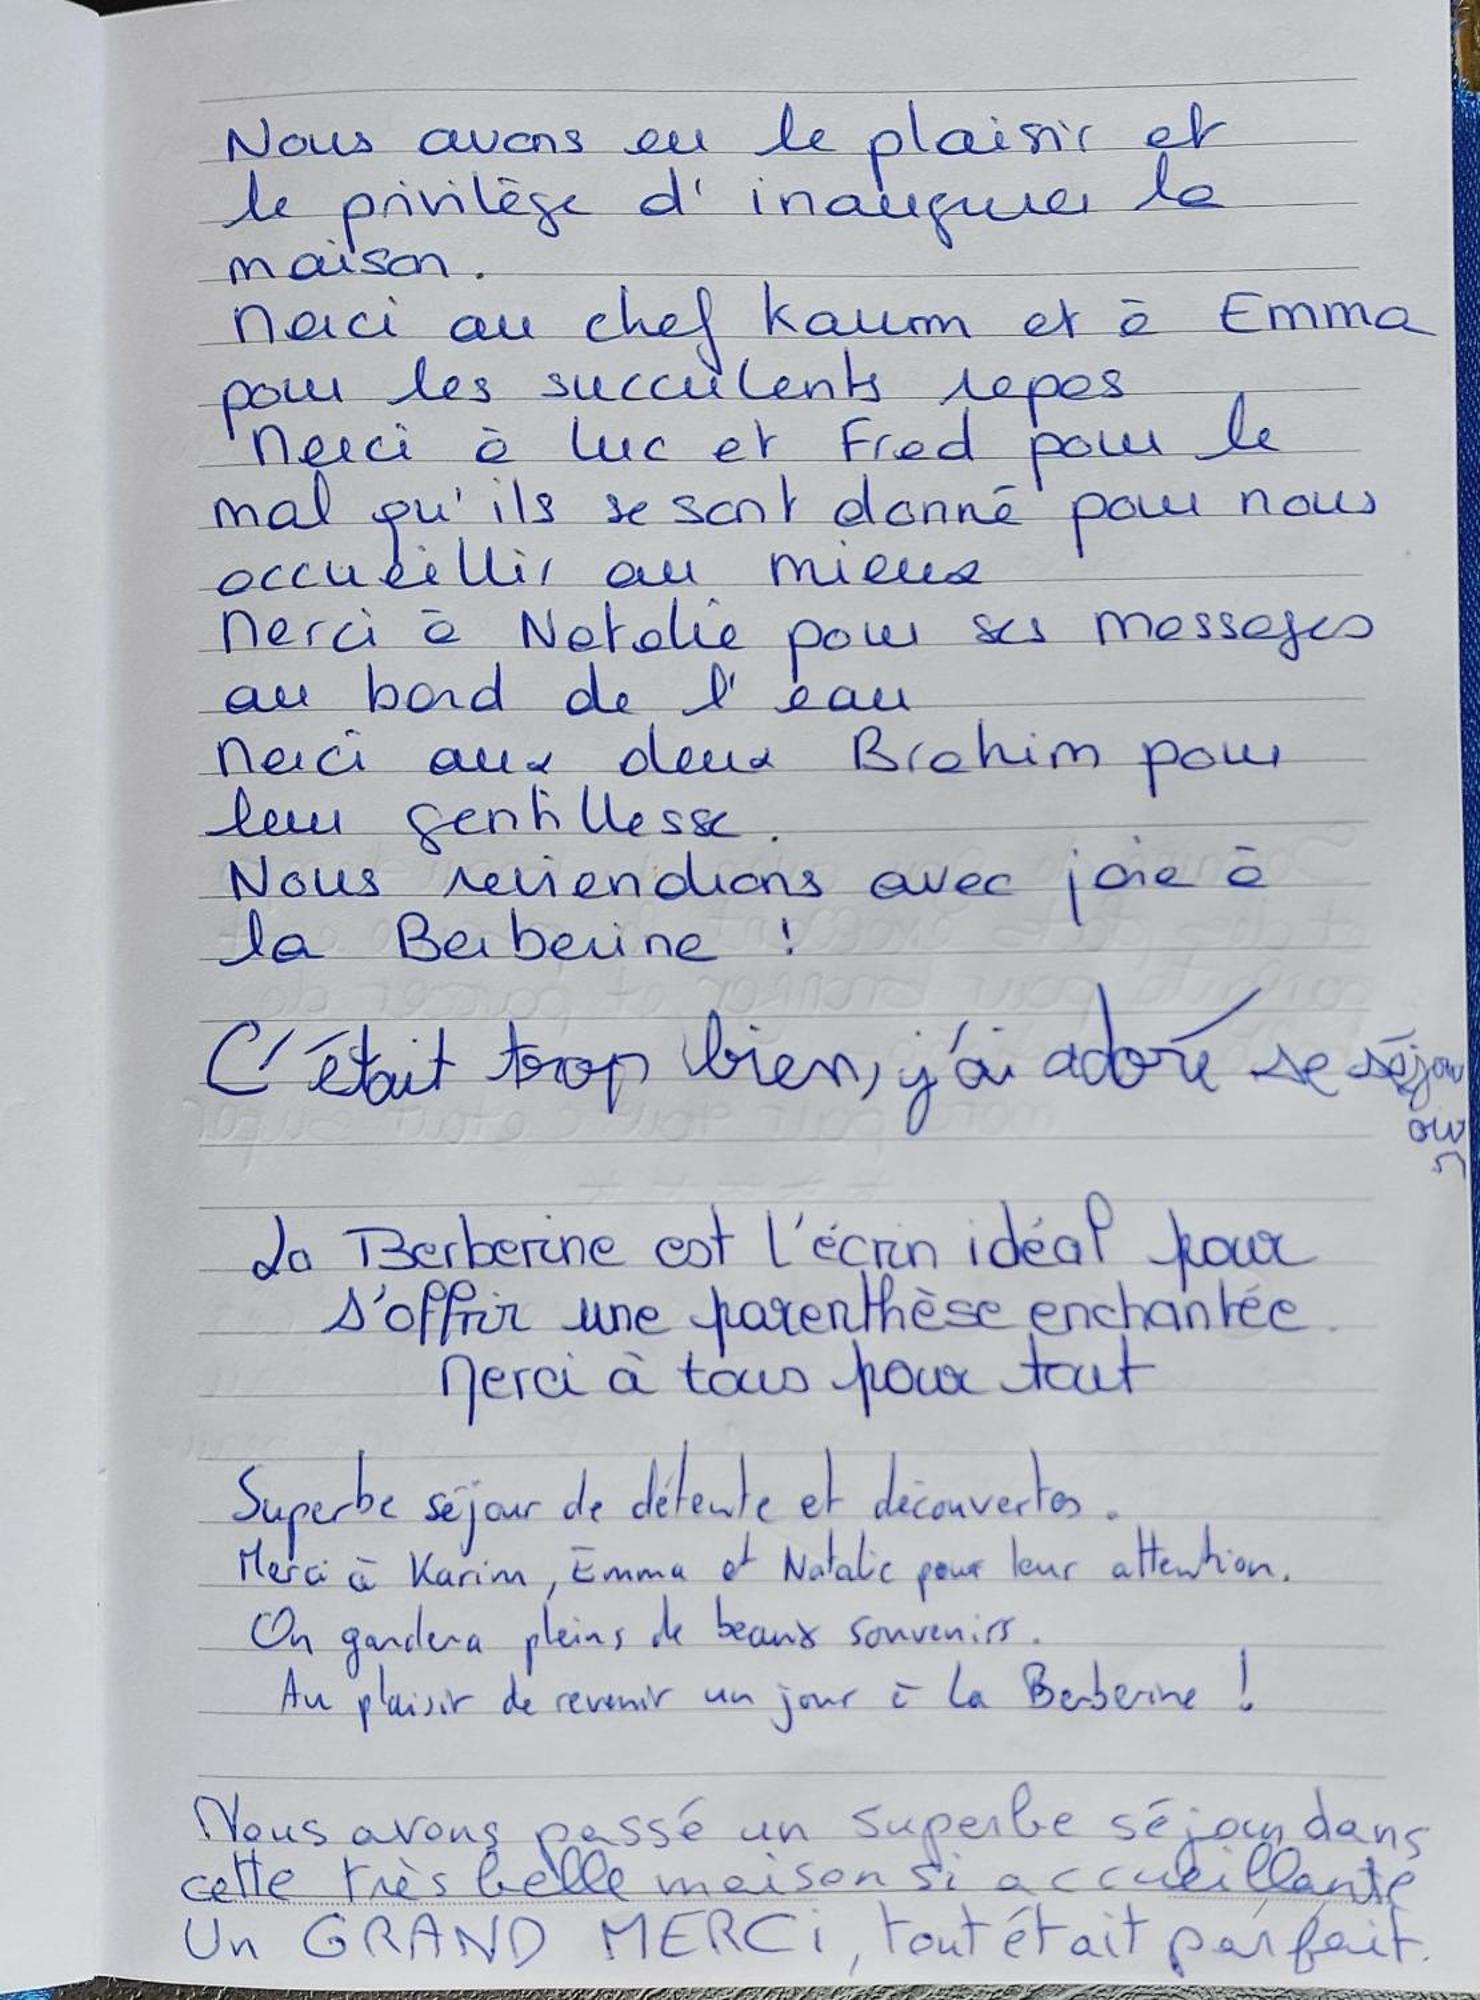 Nous avons eu le plaisir et
le privilège d'inaugurer la
maison.
Merci au chef Karim et à Emma
pour les succulents repas
Merci à Luc et Fred pour le
mal qu'ils se sont donné pour nous
accueillir au mieux
Merci à Natalie pour ses massages
au bord de l'eau
Merci aux deux Brahim pour
leur gentillesse.
Nous reviendrions avec joie à
la Berberine !
C'était trop bien, j'ai adoré se séjour
La Berberine est l'écrin idéal pour
s'offrir une parenthèse enchantée.
Merci à tous pour tout
Superbe séjour de détente et découvertes.
Merci à Karim, Emma et Natalie pour leur attention.
On gardera pleins de beaux souvenirs.
Au plaisir de revenir un jour à la Berberine !
Nous avons passé un superbe séjour dans
cette très belle maison si accueillante
Un GRAND MERCi, tout était parfait.